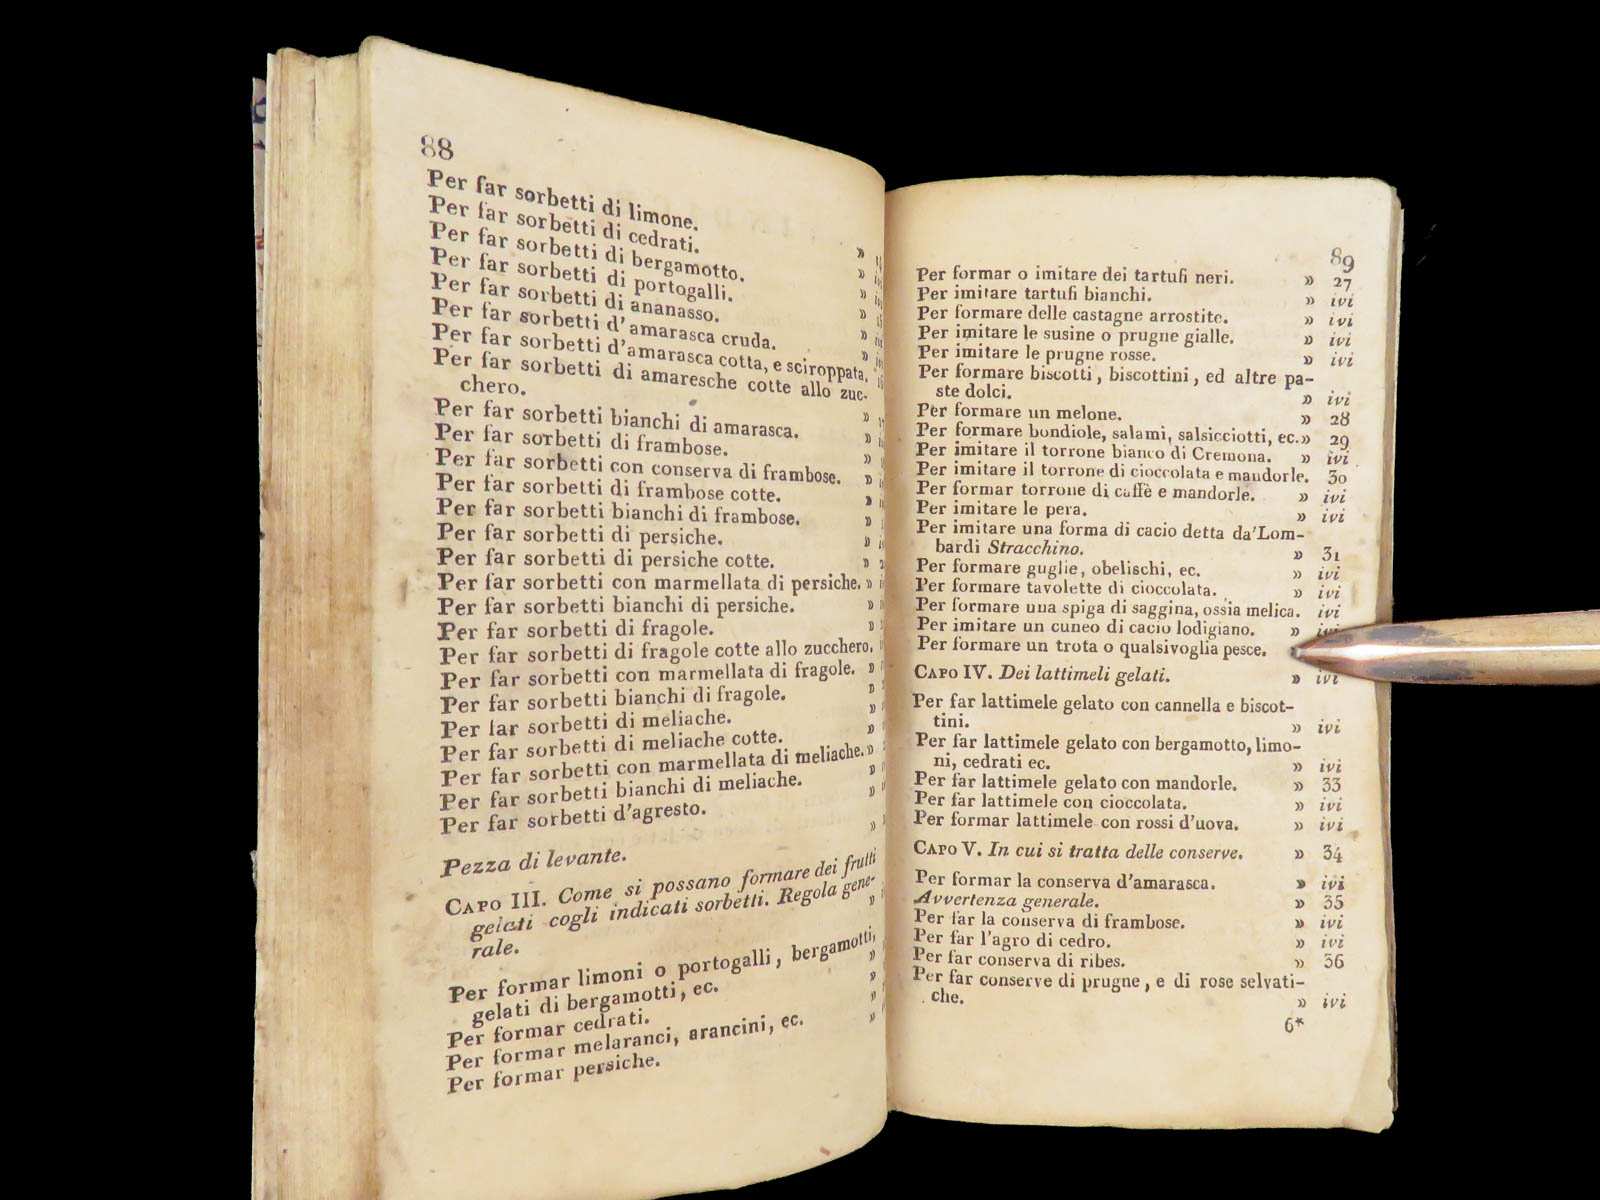 88
Per far sorbetti di limone.
Per far sorbetti di cedrati. »
Per far sorbetti di bergamotto. »
Per far sorbetti di portogalli. »
Per far sorbetti di ananasso. »
Per far sorbetti d'amarasca cruda. »
Per far sorbetti d'amarasca cotta, e sciroppata, »
Per far sorbetti di amaresche cotte allo zuc-
chero. »
Per far sorbetti bianchi di amarasca. »
Per far sorbetti di frambose. »
Per far sorbetti con conserva di frambose. »
Per far sorbetti di frambose cotte. »
Per far sorbetti bianchi di frambose. »
Per far sorbetti di persiche. »
Per far sorbetti di persiche cotte. »
Per far sorbetti con marmellata di persiche. »
Per far sorbetti bianchi di persiche. »
Per far sorbetti di fragole. »
Per far sorbetti di fragole cotte allo zucchero,
Per far sorbetti con marmellata di fragole. »
Per far sorbetti bianchi di fragole. »
Per far sorbetti di meliache. »
Per far sorbetti di meliache cotte. »
Per far sorbetti con marmellata di meliache. »
Per far sorbetti bianchi di meliache. »
Per far sorbetti d'agresto. »
Pezza di levante. »
CAPO III. Come si possano formare dei frutti
gelati cogli indicati sorbetti. Regola gene-
rale. »
Per formar limoni o portogalli, bergamotti,
gelati di bergamotti, ec. »
Per formar cedrati. »
Per formar melaranci, arancini, ec. »
Per formar persiche. »
89
Per formar o imitare dei tartufi neri. » 27
Per imitare tartufi bianchi. » ivi
Per formare delle castagne arrostite. » ivi
Per imitare le susine o prugne gialle. » ivi
Per imitare le prugne rosse. » ivi
Per formare biscotti, biscottini, ed altre pa-
ste dolci. » ivi
Per formare un melone. » 28
Per formare bondiole, salami, salsicciotti, ec. » 29
Per imitare il torrone bianco di Cremona. » ivi
Per imitare il torrone di cioccolata e mandorle. 30
Per formar torrone di caffè e mandorle. » ivi
Per imitare le pera. » ivi
Per imitare una forma di cacio detta da'Lom-
bardi Stracchino. » 31
Per formare guglie, obelischi, ec. » ivi
Per formare tavolette di cioccolata. » ivi
Per formare una spiga di saggina, ossia melica. ivi
Per imitare un cuneo di cacio lodigiano. » ivi
Per formare un trota o qualsivoglia pesce.
CAPO IV. Dei lattimeli gelati. » ivi
Per far lattimele gelato con cannella e biscot-
tini. » ivi
Per far lattimele gelato con bergamotto, limo-
ni, cedrati ec. » ivi
Per far lattimele gelato con mandorle. » 33
Per far lattimele con cioccolata. » ivi
Per formar lattimele con rossi d'uova. » ivi
CAPO V. In cui si tratta delle conserve. » 34
Per formar la conserva d'amarasca. » ivi
Avvertenza generale. » 35
Per far la conserva di frambose. » ivi
Per far l'agro di cedro. » ivi
Per far conserva di ribes. » 36
Per far conserve di prugne, e di rose selvati-
che. » ivi
6*